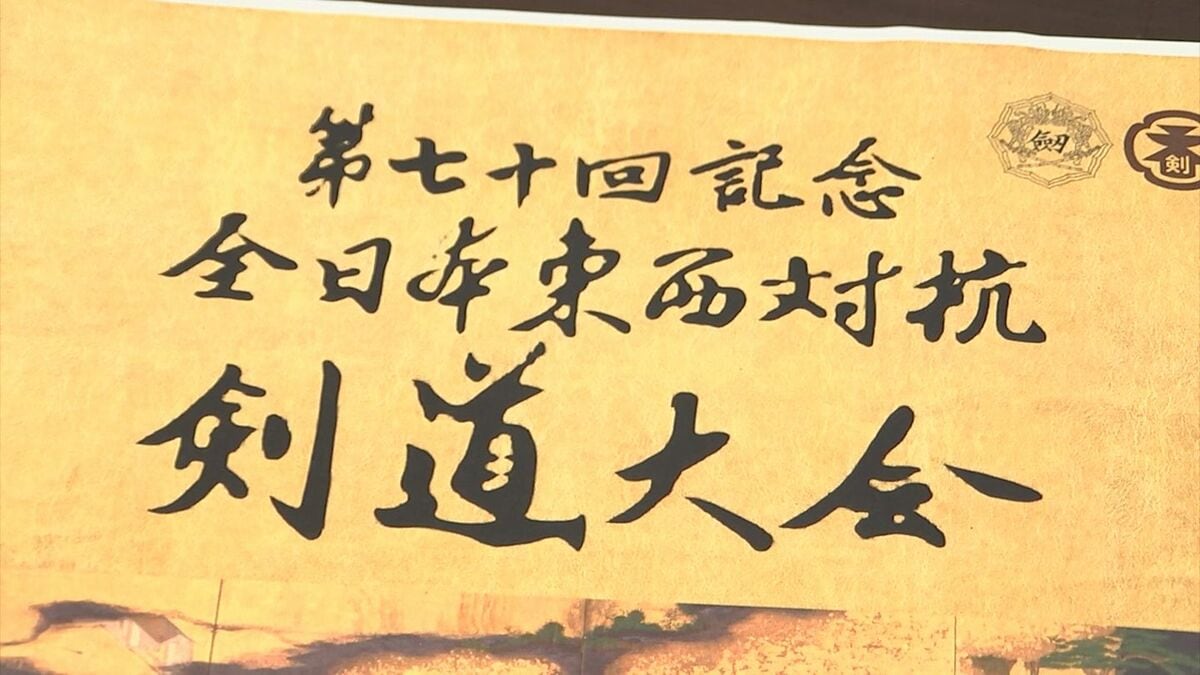 第七十回記念
全日本東西対抗
剣道大会
劔
剣